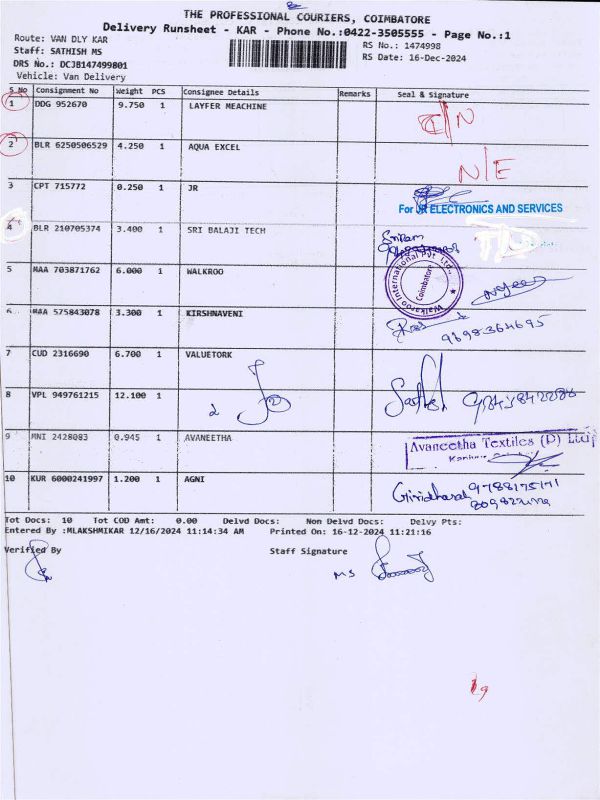 THE PROFESSIONAL COURIERS, COIMBATORE
Delivery Runsheet - KAR - Phone No.:0422-3505555 - Page No.:1
Route: VAN DLY KAR
RS No.: 1474998
Staff: SATHISH MS
RS Date: 16-Dec-2024
DRS No.: DCJB147499801
Vehicle: Van Delivery
S No Consignment No Weight PCS Consignee Details Remarks Seal & Signature
1 DDG 952670 9.750 1 LAYFER MEACHINE
2 BLR 6250506529 4.250 1 AQUA EXCEL N/E
3 CPT 715772 0.250 1 JR
For JR ELECTRONICS AND SERVICES
4 BLR 210705374 3.400 1 SRI BALAJI TECH Sriram
5 MAA 703871762 6.000 1 WALKROO
Walkaroo International Pvt. Ltd.,
Coimbatore
6 MAA 575843078 3.300 1 KIRSHNAVENI
9698364695
7 CUD 2316690 6.700 1 VALUETORK
8 VPL 949761215 12.100 1 Sathish
9 MNI 2428083 0.945 1 AVANEETHA Avaneetha Textiles (P) Ltd
10 KUR 6000241997 1.200 1 AGNI Giridharan 9788175171
Tot Docs: 10 Tot COD Amt: 0.00 Delvd Docs: Non Delvd Docs: Delvy Pts:
Entered By :MLAKSHMIKAR 12/16/2024 11:14:34 AM Printed On: 16-12-2024 11:21:16
Verified By Staff Signature
MS